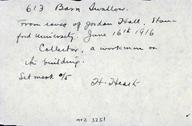 613 Barn Swallow.
From eaves of Jordan Hall, Stan-
ford University. June 16th 1916
Collector, a workman on
the building.
Set mark 4/5
H. Heath
MVZ 3251